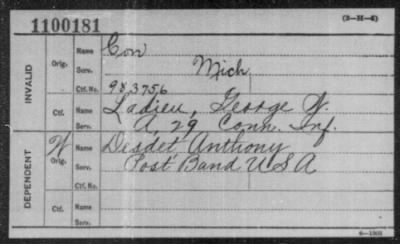 1100181
(3-H-6)
INVALID
Orig.
Name Con
Serv. Mich.
Ctf. No. 983756
Ctf.
Name Ladieu, George W.
Serv. A, 29 Conn. Inf.
DEPENDENT
W
Orig.
Name Desdet Anthony
Serv. Post Band U S A
Ctf. No.
Ctf.
Name
Serv.